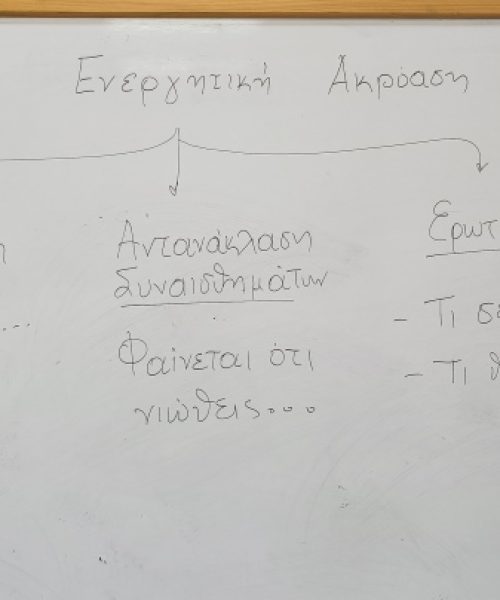 Ενεργητική Ακρόαση
Αντανάκλαση
Συναισθημάτων
Φαίνεται ότι
νιώθεις...
...
- Τι
- Τι